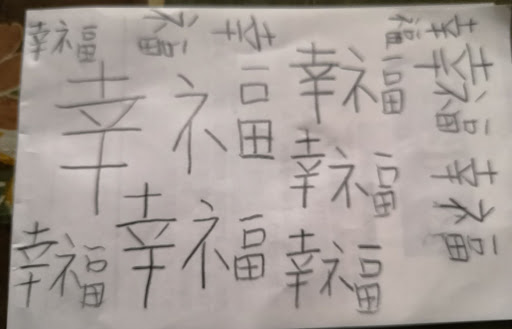 幸福
福
幸
幸福
幸福
幸福
幸福
幸福
幸福
幸福
幸福
幸福